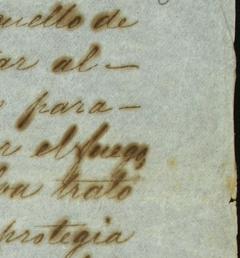 uello de
ar al-
para-
r el fuego
va trato
protegia